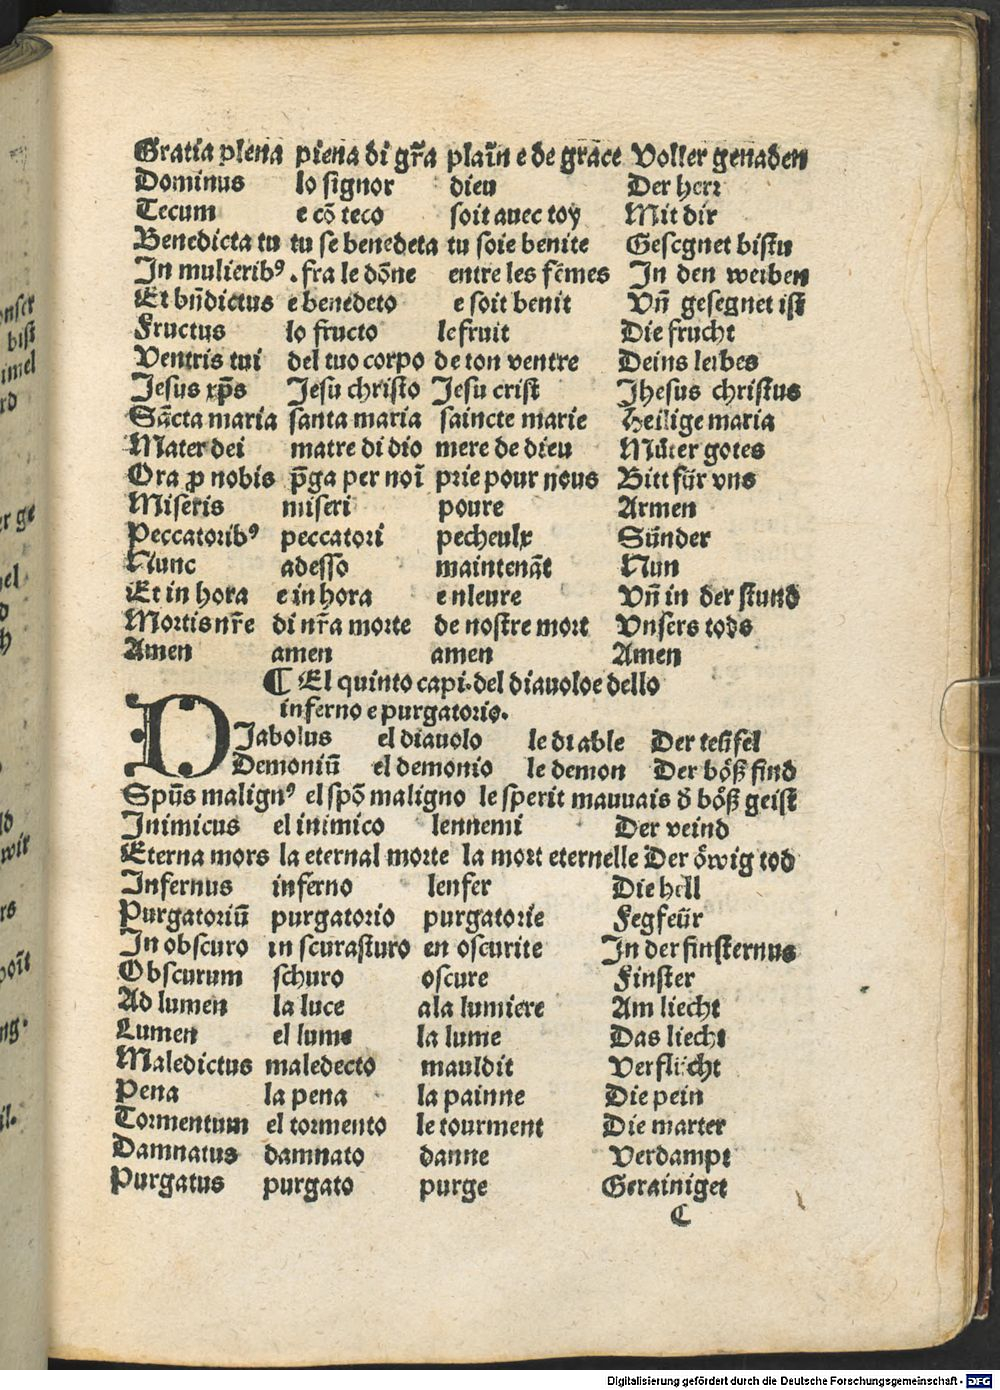 Gratia plena piena di gr̃a plaĩn e de grace Voller genaden
Dominus lo signor dieu Der herr
Tecum e cõ teco soit auec toy Mit dir
Benedicta tu tu se benedeta tu soie benite Gesegnet bistu
In mulieribꝰ . fra le dõne entre les fẽmes In den weiben
Et bñdictus e benedeto e soit benit Vñ gesegnet ist
Fructus lo fructo le fruit Die frucht
Ventris tui del tuo corpo de ton ventre Deins leibes
Jesus xp̃s Jesu christo Jesu crist Jhesus christus
Sãcta maria santa maria saincte marie Heilige maria
Mater dei matre di dio mere de dieu Můter gotes
Ora ꝓ nobis p̃ga per noĩ prie pour nous Bitt für vns
Miseris miseri poure Armen
Peccatoribꝰ peccatori pecheulx Sünder
Nunc adesso maintenãt Nun
Et in hora e in hora e nleure Vñ in der stund
Mortis nr̃e di nr̃a morte de nostre mort Vnsers tods
Amen amen amen Amen
¶ El quinto capi. del diauolo e dello
inferno e purgatorio.
DJabolus el diauolo le diable Der teüfel
Demoniũ el demonio le demon Der böß find
Spũs malignꝰ el spõ maligno le sperit mauuais d̕ böß geist
Inimicus el inimico lennemi Der veind
Eterna mors la eternal morte la mort eternelle Der öwig tod
Infernus inferno lenfer Die hell
Purgatoriũ purgatorio purgatorie Fegfeür
In obscuro in scurasturo en oscurite In der finsternus
Obscurum schuro oscure Finster
Ad lumen la luce ala lumiere Am liecht
Lumen el lume la lume Das liecht
Maledictus maledecto mauldit Verflücht
Pena la pena la painne Die pein
Tormentum el tormento le tourment Die marter
Damnatus damnato danne Verdampt
Purgatus purgato purge Gerainiget
C
Digitalisierung gefördert durch die Deutsche Forschungsgemeinschaft - DFG